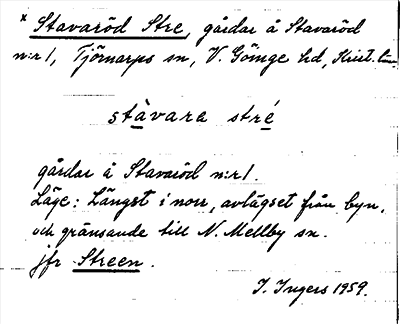 x Stavaröd Stre, gårdar å Stavaröd
n:r 1, Tjörnarps sn, V. Göinge hd, Krist. län
stàvara stré
gårdar å Stavaröd n:r 1.
Läge: Längst i norr, avlägset från byn,
och gränsande till N. Mellby sn.
jfr Streen.
I. Ingers 1959.